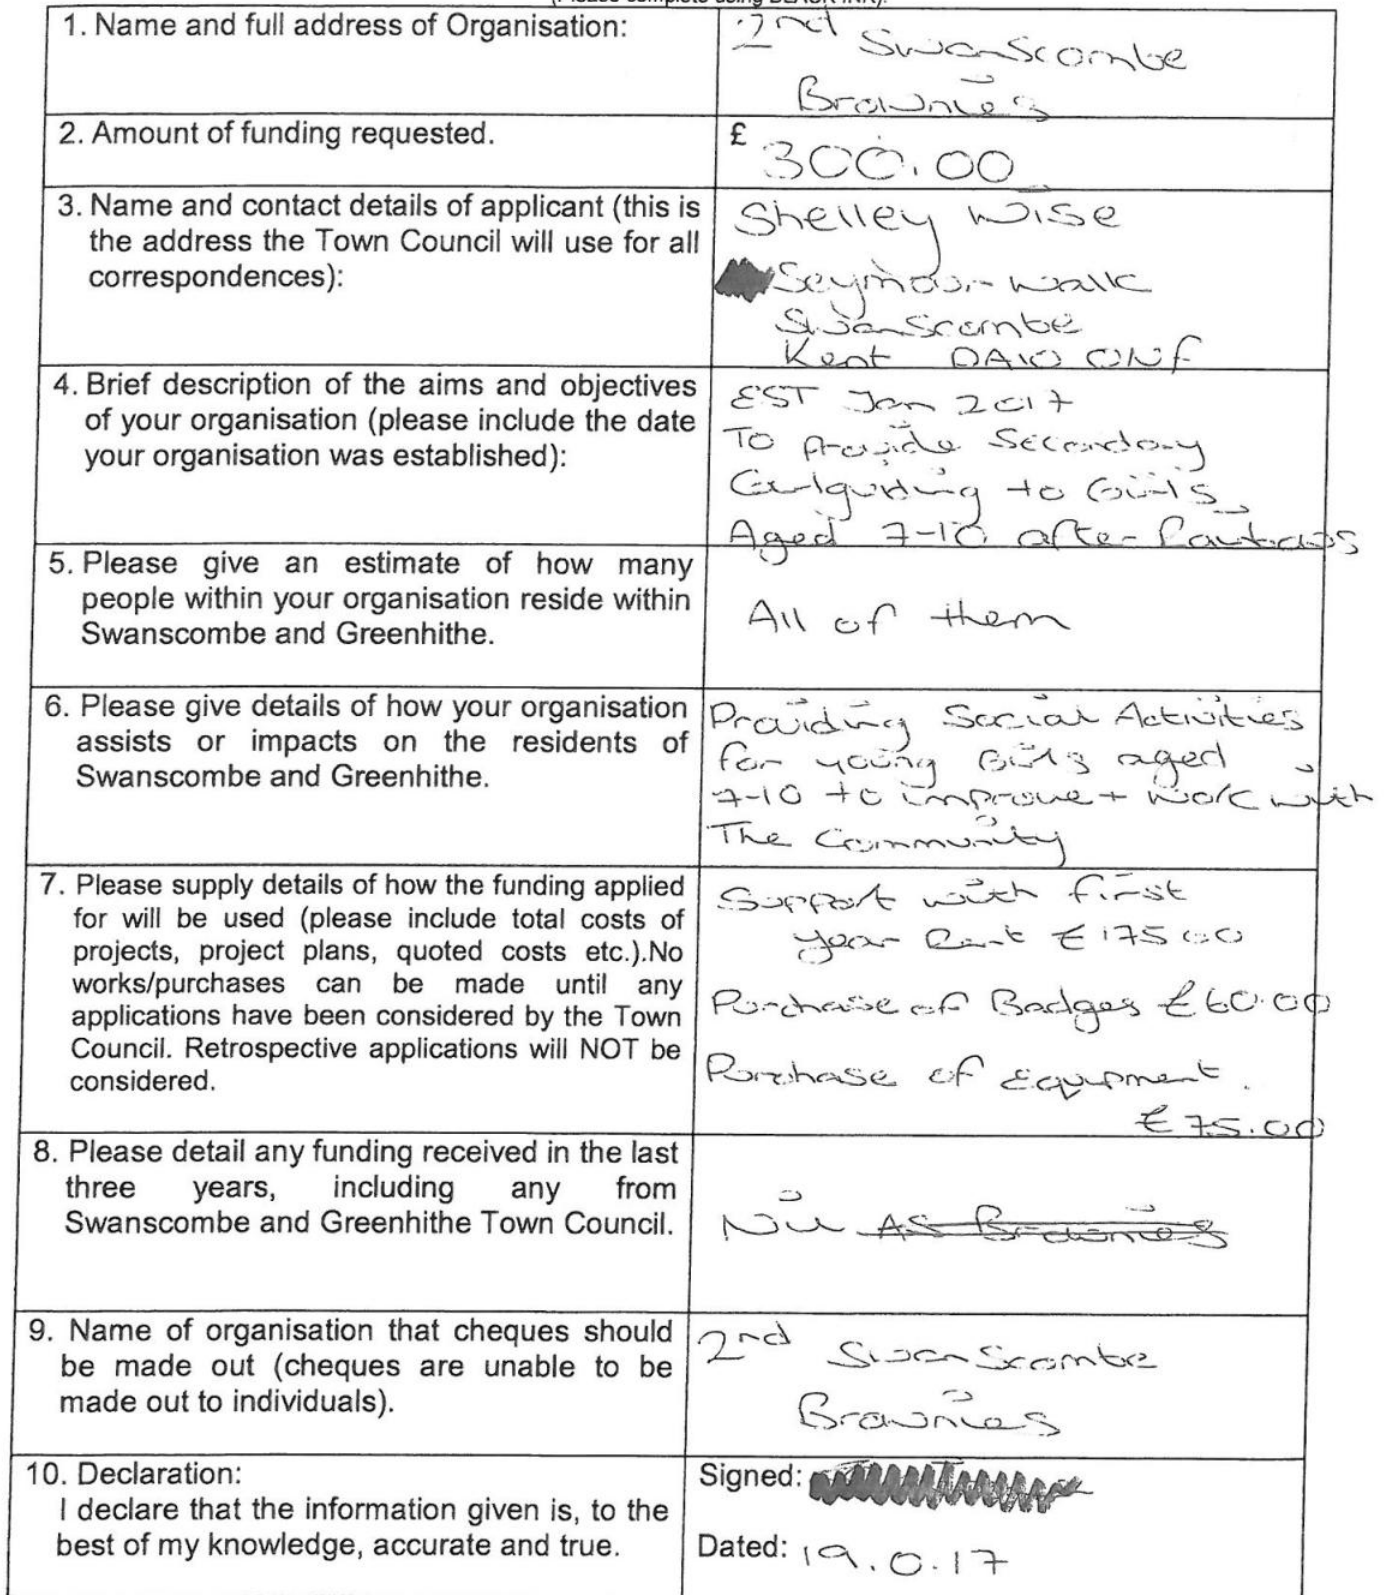 (Please complete using BLACK INK).
1. Name and full address of Organisation:
2nd Swanscombe
Brownies
2. Amount of funding requested.
£ 300.00
3. Name and contact details of applicant (this is
the address the Town Council will use for all
correspondences):
Shelley Wise
Seymour walk
Swanscombe
Kent DA10 0NF
4. Brief description of the aims and objectives
of your organisation (please include the date
your organisation was established):
EST Jan 2017
To Provide Secondary
Girlguiding to Girls
Aged 7-10 after Rainbows
5. Please give an estimate of how many
people within your organisation reside within
Swanscombe and Greenhithe.
All of them
6. Please give details of how your organisation
assists or impacts on the residents of
Swanscombe and Greenhithe.
Providing Social Activities
for young Girls aged
7-10 to improve + work with
The Community
7. Please supply details of how the funding applied
for will be used (please include total costs of
projects, project plans, quoted costs etc.).No
works/purchases can be made until any
applications have been considered by the Town
Council. Retrospective applications will NOT be
considered.
Support with first
year Rent £175 00
Purchase of Badges £60.00
Purchase of Equipment.
£75.00
8. Please detail any funding received in the last
three years, including any from
Swanscombe and Greenhithe Town Council.
Nil As Brownies
9. Name of organisation that cheques should
be made out (cheques are unable to be
made out to individuals).
2nd Swanscombe
Brownies
10. Declaration:
I declare that the information given is, to the
best of my knowledge, accurate and true.
Signed:
Dated: 19.0.17